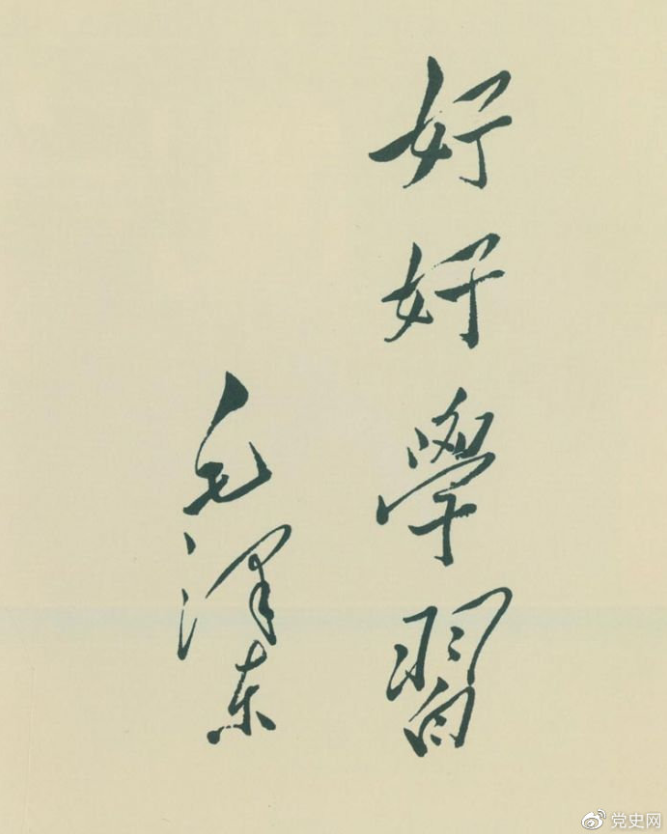 好好學習
毛泽东
党史网